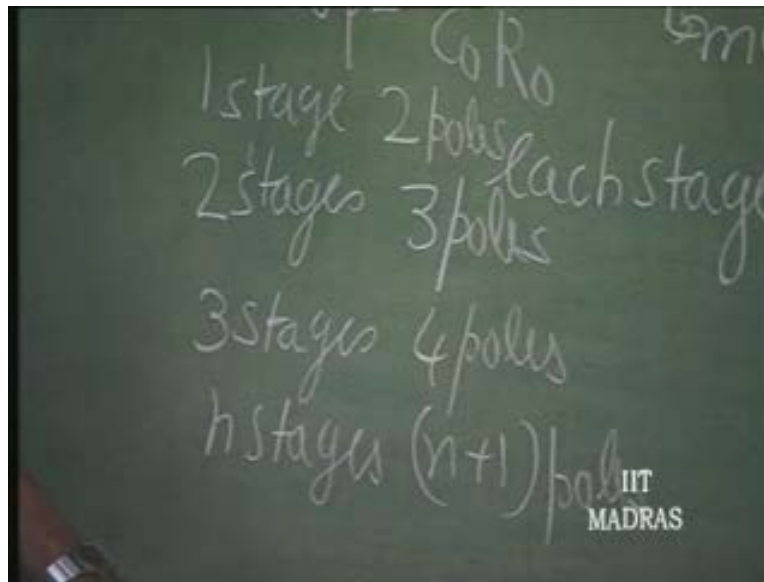 C₀R₀
1 stage 2 poles each stage
2 stages 3 poles
3 stages 4 poles
n stages (n+1) poles
IIT
MADRAS